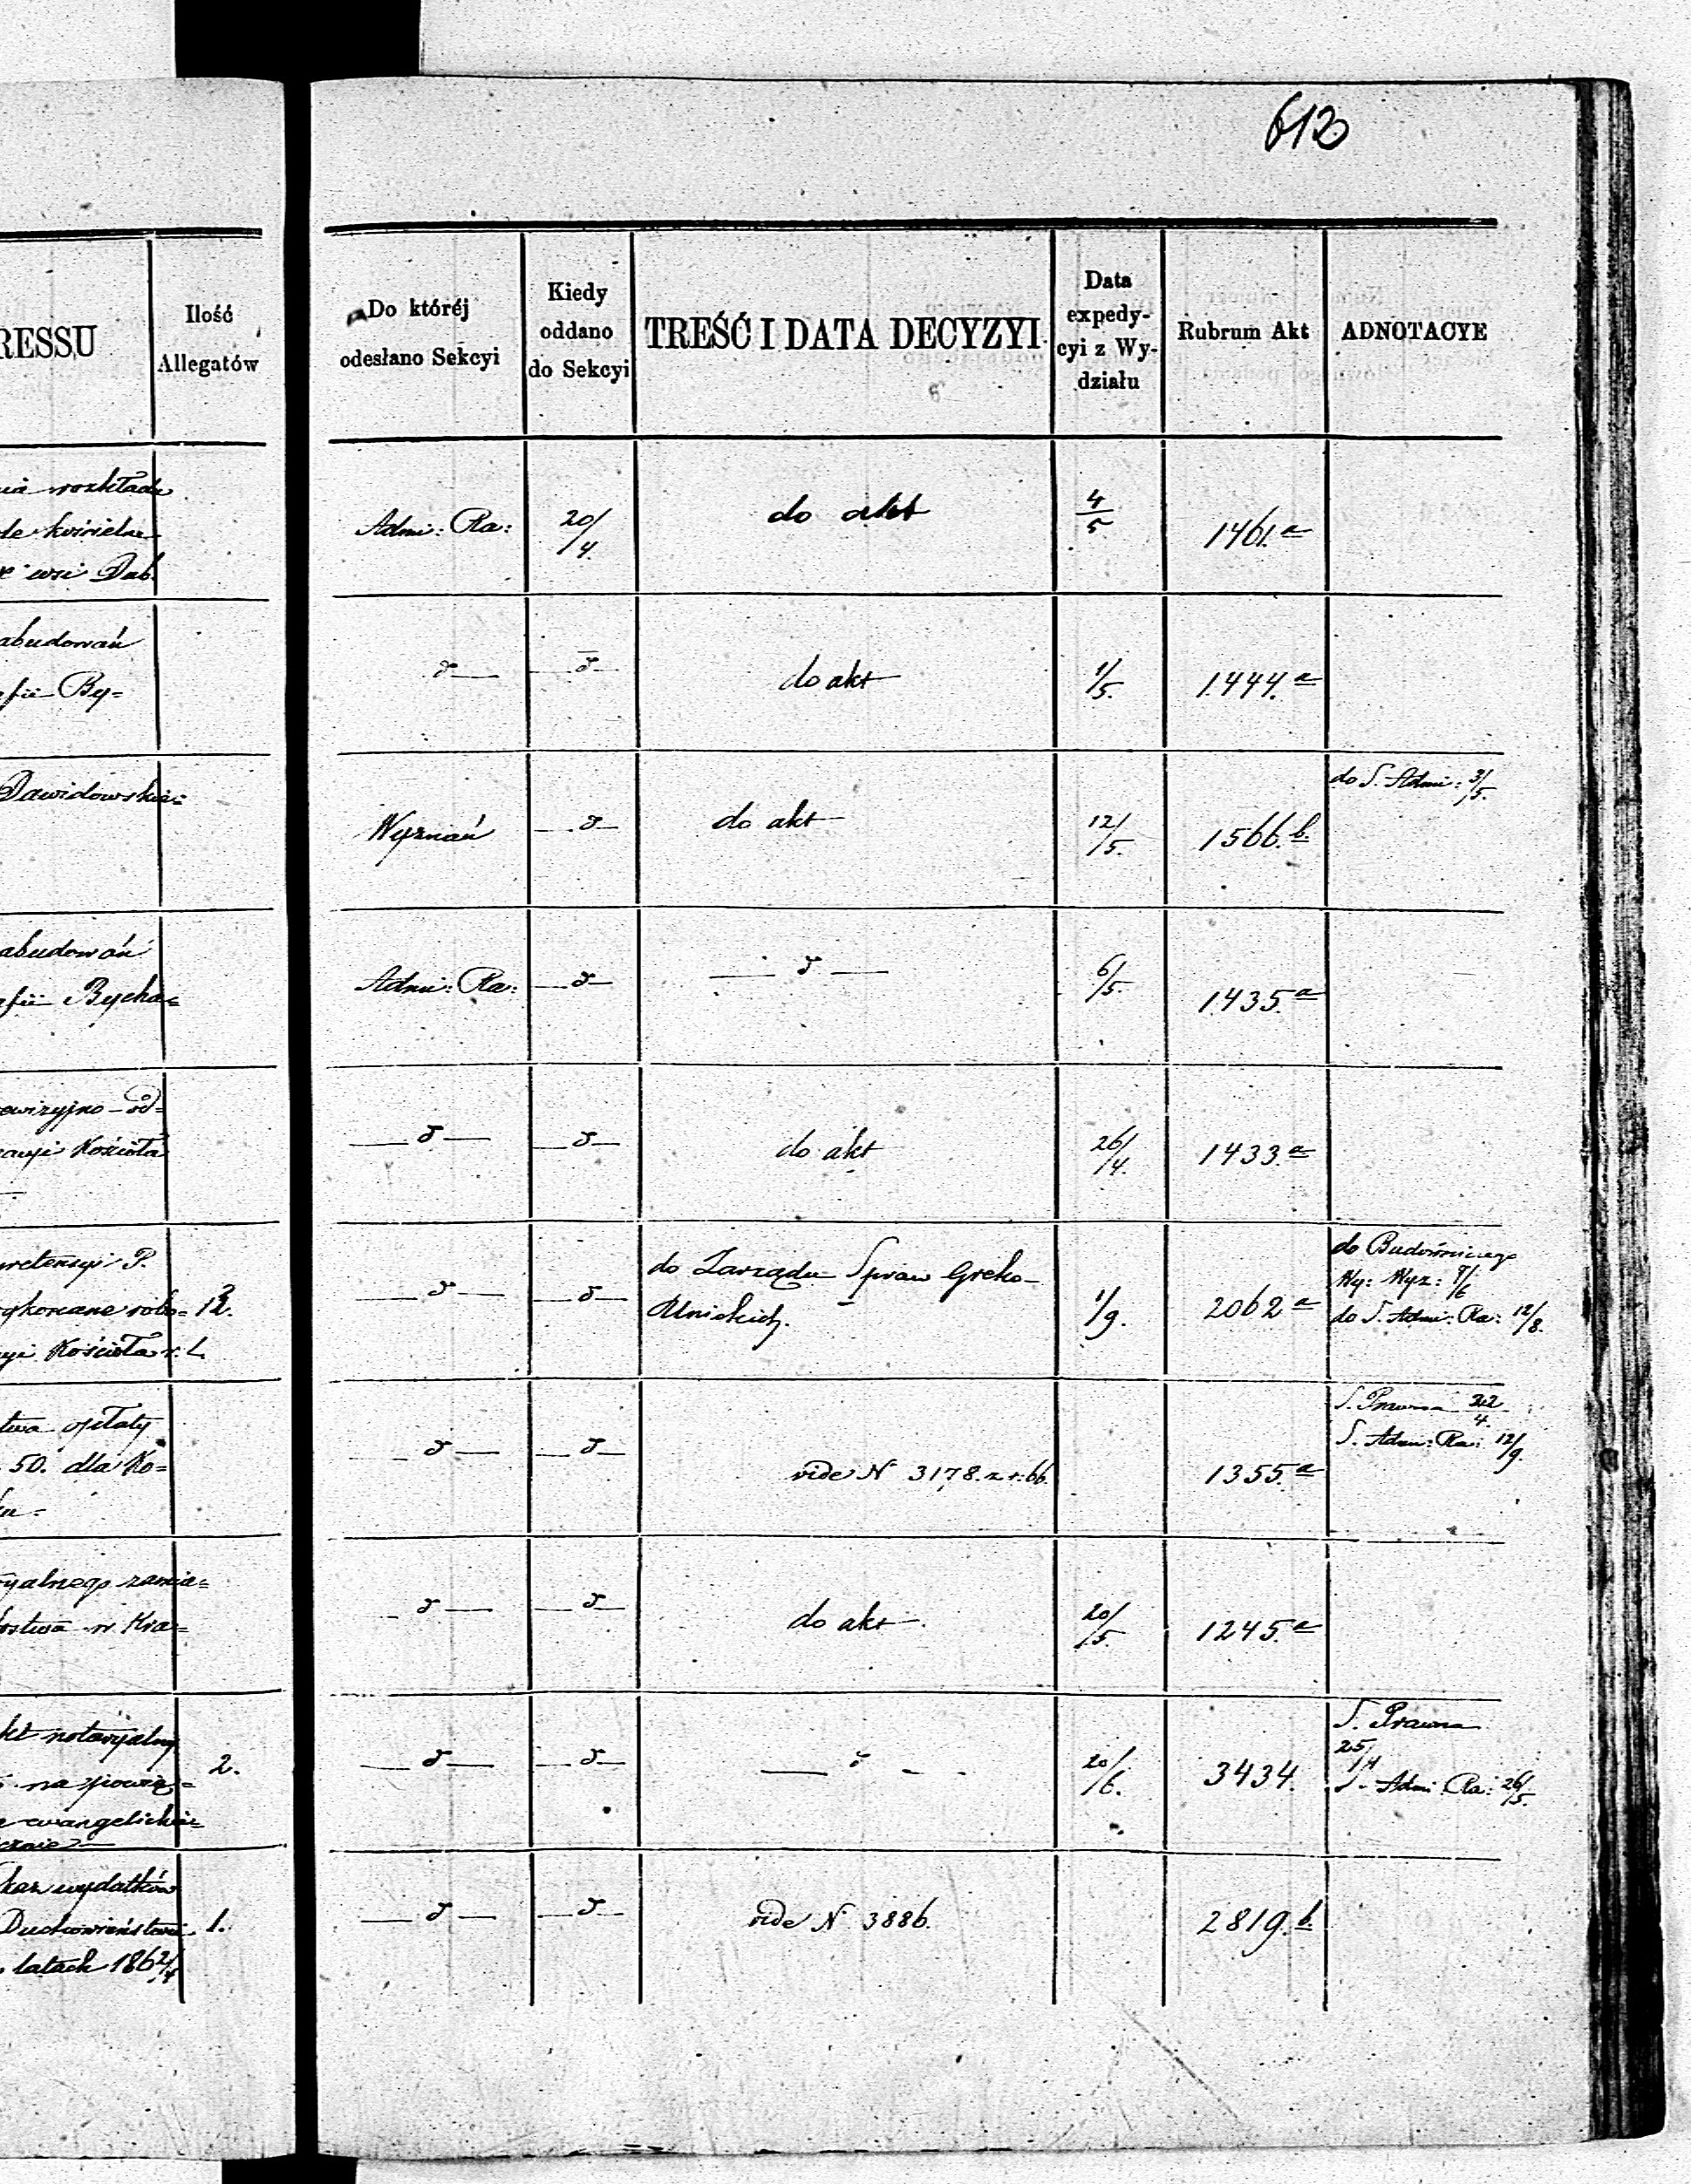 612
RESSU
Ilość
Allegatów
Do któréj
odesłano Sekcyi
Kiedy
oddano
do Sekcyi
TREŚĆ I DATA DECYZYI
Data
expedy-
cyi z Wy-
działu
Rubrum Akt
ADNOTACYE
nia rozkładu
wsi Dąb.
Admi: Ra:
20/4.
do akt
4/5
1461.a
abudowań
afii By=
d
d
do akt
1/5.
1444.a
Dawidowskie=
Wyznań
d
do akt
12/5.
1566.b.
do S. Admi: 3/5.
abudowań
afii Bycha=
Admi: Ra:
d
d
6/5.
1435.a
ewizyjno-od=
Kościoła
d
d
do akt
26/4.
1433.a
pretensyi P.
ykonane robo=
12.
yi Kościoła r. L.
d
d
do Zarządu Spraw Greko-
Unickich.
1/9.
2062 a
do Budowniczego
Wy: Wyz: 7/6
do S. Admi: Ra: 12/8.
twa opłaty
50. dla Ko=
d
d
vide N 3178. z r. 66.
1355.a
S. Prawna 22/4.
S. Adm: Ra: 12/9.
yalnego zamia=
ostwa w Kra=
d
d
do akt.
20/5.
1245.a
kt notaryalny
na powię=
ewangelickie=
2.
d
d
d
20/6.
3434.
S. Prawna
25/4
S. Admi Ra: 26/5.
kaz wydatków
Duchowieństwa
latach 1862/4
1.
d
d
vide N 3886.
2819.b.